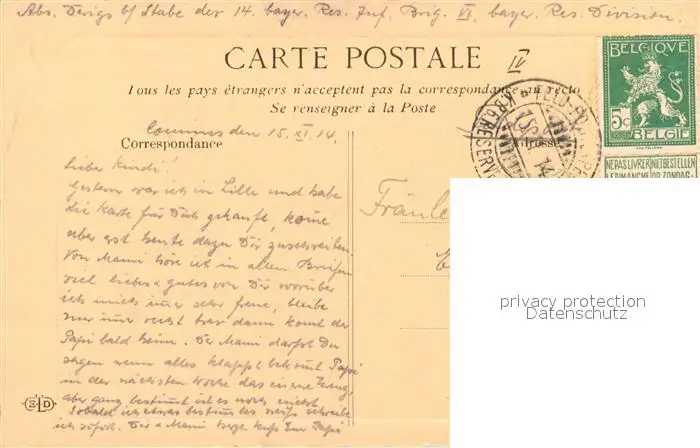 Abs. Derigs b/ Stabe der 14. bayer. Res. Inf. Brig. VI bayer. Res. Division.
CARTE POSTALE
IV
Tous les pays étrangers n'acceptent pas la correspondance au recto
Se renseigner à la Poste
BELGIQUE
5c
BELGIË
NE PAS LIVRER LE DIMANCHE
NIET BESTELLEN OP ZONDAG
K.B. 6. RESERVE
Comines den 15. XI. 14.
Correspondance
Adresse
Lieber Kindi!
Gestern war ich in Lille und habe
die Karte für Dich gekauft, komme
aber erst heute dazu Dir zuschreiben.
Von Mami höre ich in allen Briefen
viel liebes & gutes von Dir worüber
ich mich immer sehr freue, bleibe
nur immer recht brav dann kommt der
Papi bald heim. Der Mami darfst Du
sagen wenn alles klappt bekommt Papi
in der nächsten Woche das eiserne Kreuz,
aber ganz bestimmt ist es noch nicht.
Sobald ich etwas bestimmtes weiß schreibe
ich sofort. Dir & Mami Kuß Euer Papi
Fräule
ELD
privacy protection
Datenschutz